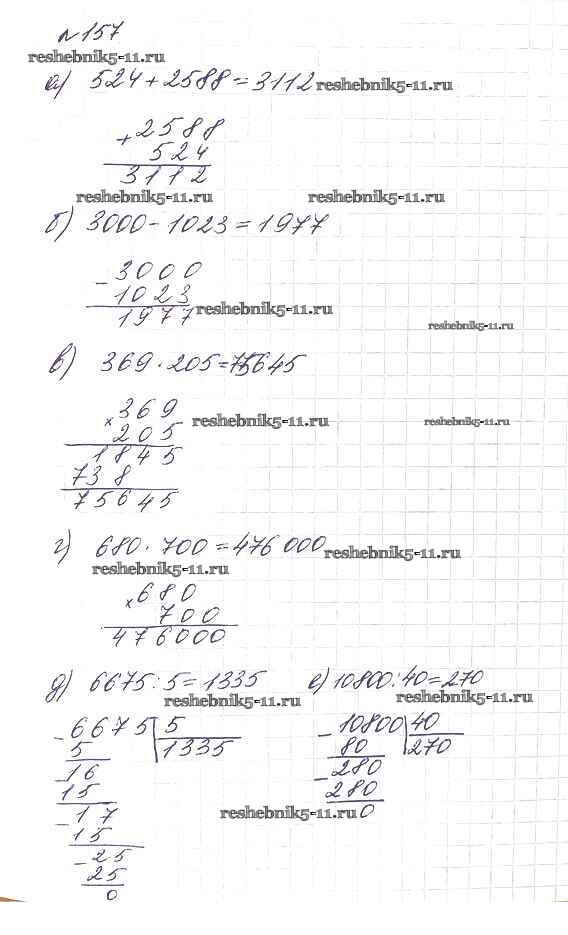 №157
reshebnik5-11.ru
а) 524 + 2588 = 3112 reshebnik5-11.ru
+ 2588
524
3112
reshebnik5-11.ru reshebnik5-11.ru
б) 3000 - 1023 = 1977
- 3000
1023
1977 reshebnik5-11.ru
reshebnik5-11.ru
в) 369 · 205 = 75645
× 369 reshebnik5-11.ru reshebnik5-11.ru
205
1845
738
75645
г) 680 · 700 = 476 000 reshebnik5-11.ru
reshebnik5-11.ru
× 680
700
476000
д) 6675 : 5 = 1335 е) 10800 : 40 = 270
reshebnik5-11.ru reshebnik5-11.ru
- 6675 5 - 10800 40
5 1335 80 270
- 16 - 280
15 280
- 17 reshebnik5-11.ru 0
15
- 25
25
0